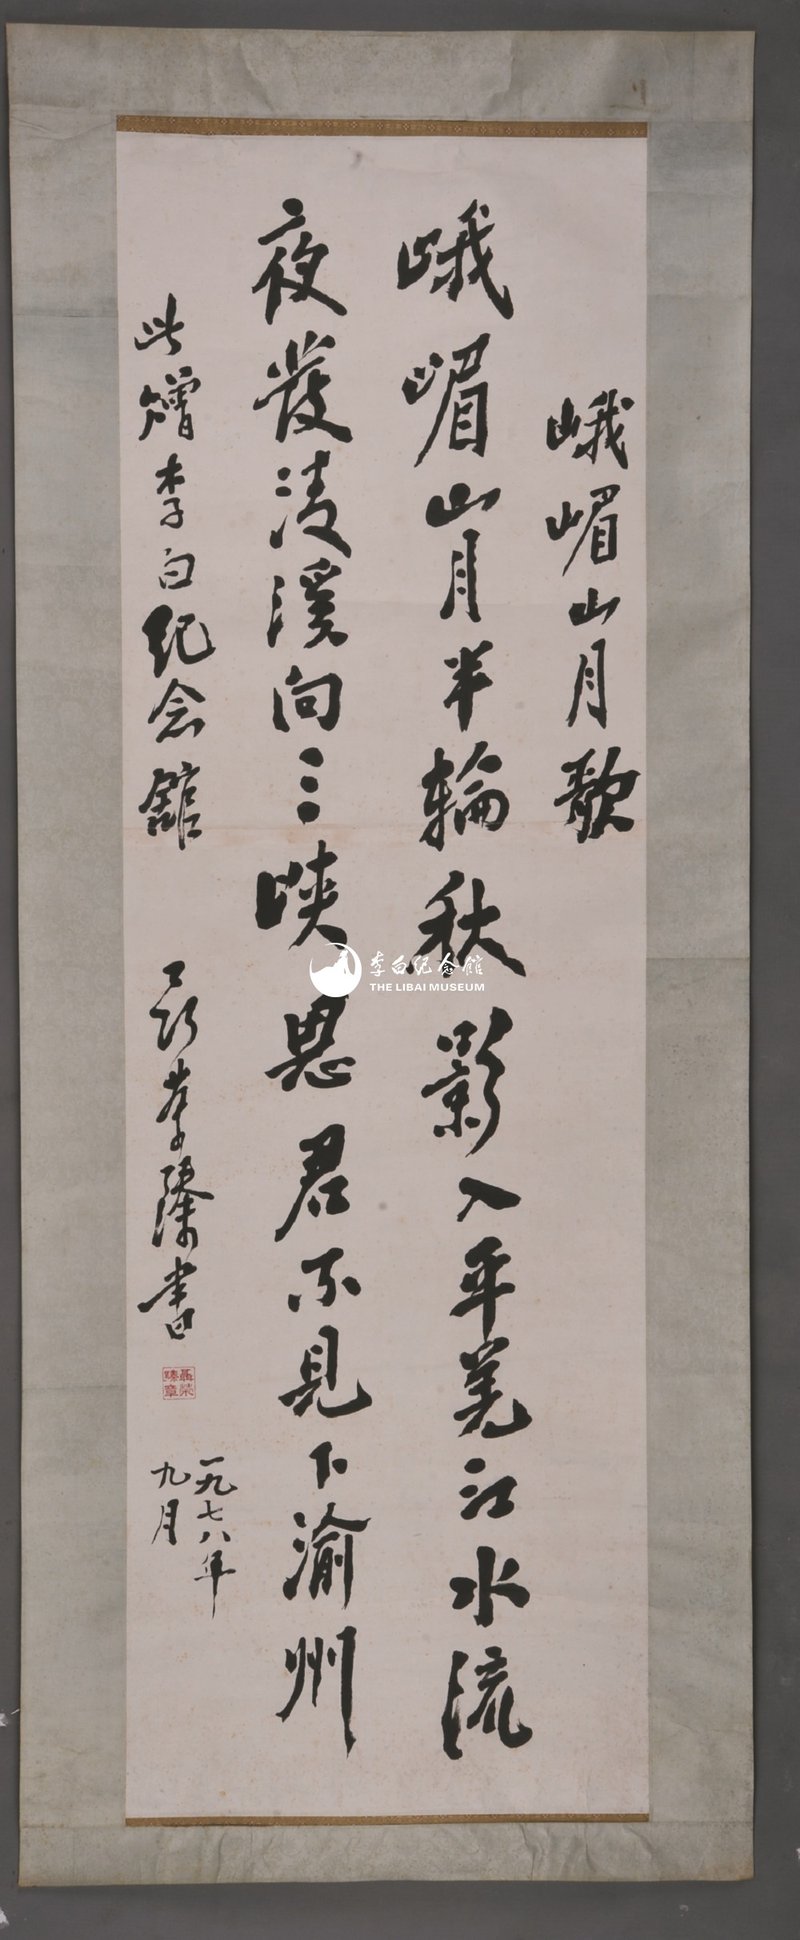 峨嵋山月歌
峨嵋山月半輪秋影入平羌江水流
夜發淸溪向三峡思君不見下渝州
此赠李白纪念舘
聂荣臻書
聶榮臻章
一九七八年
九月
李白纪念館
THE LIBAI MUSEUM